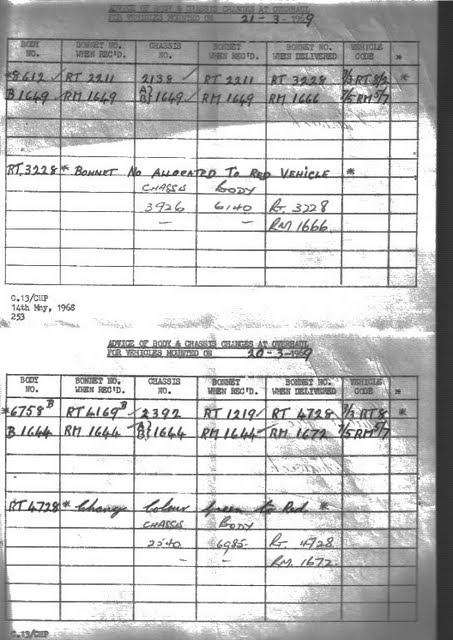 ADVICE OF BODY & CHASSIS CHANGES AT OVERHAUL
FOR VEHICLES MOUNTED ON 21-3-1969
BODY NO. BONNET NO. WHEN REC'D. CHASSIS NO. BONNET WHEN REC'D. BONNET NO. WHEN DELIVERED VEHICLE CODE *
*8612 RT 2211 2138 RT 2211 RT 3228 7/3 RT 8/2 *
B 1649 RM 1649 A} B} 1649 RM 1649 RM 1666 7/5 RM 5/7
RT.3228 * BONNET NO ALLOCATED TO RED VEHICLE *
CHASSIS BODY
3926 6140 RT. 3228
— — RM 1666.
C.13/CHP
14th May, 1968
253
ADVICE OF BODY & CHASSIS CHANGES AT OVERHAUL
FOR VEHICLES MOUNTED ON 20-3-1969
BODY NO. BONNET NO. WHEN REC'D. CHASSIS NO. BONNET WHEN REC'D. BONNET NO. WHEN DELIVERED VEHICLE CODE *
*6758 B RT 4169 B 2392 RT 1219 RT 4728 RT 8 *
B 1644 RM 1644 A} B} 1644 RM 1644 RM 1672 7/5 RM 5/7
RT 4728 * Change Colour green to Red *
CHASSIS BODY
2540 6985. RT. 4728
— — RM. 1672.
C.13/CHP